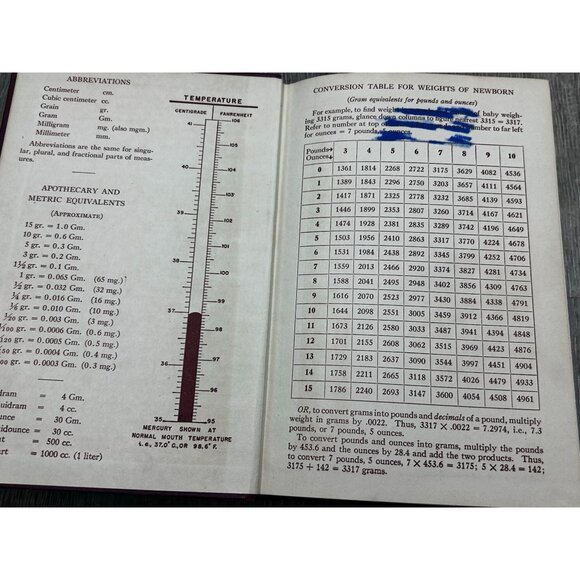 ABBREVIATIONS
Centimeter cm.
Cubic centimeter cc.
Grain gr.
Gram Gm.
Milligram mg. (also mgm.)
Millimeter mm.
Abbreviations are the same for singu-
lar, plural, and fractional parts of meas-
ures.
APOTHECARY AND
METRIC EQUIVALENTS
(APPROXIMATE)
15 gr. = 1.0 Gm.
10 gr. = 0.6 Gm.
5 gr. = 0.3 Gm.
3 gr. = 0.2 Gm.
1½ gr. = 0.1 Gm.
1 gr. = 0.065 Gm. (65 mg.)
½ gr. = 0.032 Gm. (32 mg.)
¼ gr. = 0.016 Gm. (16 mg.)
⅙ gr. = 0.010 Gm. (10 mg.)
gr. = 0.003 Gm. (3 mg.)
gr. = 0.0006 Gm. (0.6 mg.)
gr. = 0.0005 Gm. (0.5 mg.)
gr. = 0.0004 Gm. (0.4 mg.)
gr. = 0.0003 Gm. (0.3 mg.)
= 4 Gm.
= 4 cc.
= 30 Gm.
= 30 cc.
= 500 cc.
= 1000 cc. (1 liter)
TEMPERATURE
CENTIGRADE FAHRENHEIT
41 106
105
40 104
103
39 102
101
38 100
99
37 98
97
36 96
35 95
MERCURY SHOWN AT
NORMAL MOUTH TEMPERATURE
I.e., 37.0° C., OR 98.6° F.
CONVERSION TABLE FOR WEIGHTS OF NEWBORN
(Gram equivalents for pounds and ounces)
For example, to find weight baby weigh-
ing 3315 grams, glance down columns to figure nearest 3315 = 3317.
Refer to number at top number to far left
for ounces = 7 pounds, 5 ounces.
Pounds→ 3 4 5 6 7 8 9 10
Ounces↓
0 1361 1814 2268 2722 3175 3629 4082 4536
1 1389 1843 2296 2750 3203 3657 4111 4564
2 1417 1871 2325 2778 3232 3685 4139 4593
3 1446 1899 2353 2807 3260 3714 4167 4621
4 1474 1928 2381 2835 3289 3742 4196 4649
5 1503 1956 2410 2863 3317 3770 4224 4678
6 1531 1984 2438 2892 3345 3799 4252 4706
7 1559 2013 2466 2920 3374 3827 4281 4734
8 1588 2041 2495 2948 3402 3856 4309 4763
9 1616 2070 2523 2977 3430 3884 4338 4791
10 1644 2098 2551 3005 3459 3912 4366 4819
11 1673 2126 2580 3033 3487 3941 4394 4848
12 1701 2155 2608 3062 3515 3969 4423 4876
13 1729 2183 2637 3090 3544 3997 4451 4904
14 1758 2211 2665 3118 3572 4026 4479 4933
15 1786 2240 2693 3147 3600 4054 4508 4961
OR, to convert grams into pounds and decimals of a pound, multiply
weight in grams by .0022. Thus, 3317 × .0022 = 7.2974, i.e., 7.3
pounds, or 7 pounds, 5 ounces.
To convert pounds and ounces into grams, multiply the pounds
by 453.6 and the ounces by 28.4 and add the two products. Thus,
to convert 7 pounds, 5 ounces, 7 × 453.6 = 3175; 5 × 28.4 = 142;
3175 + 142 = 3317 grams.